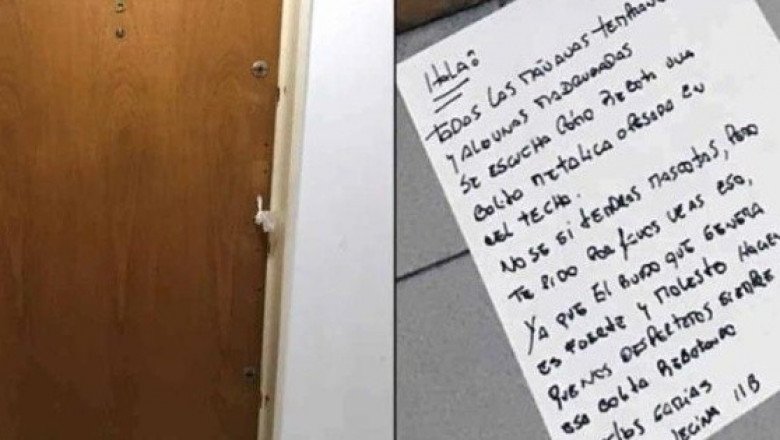 Hola:
TODAS LAS MAÑANAS TEMPRANO
Y ALGUNAS MADRUGADAS
SE ESCUCHA CÓMO REBOTA UNA
BOLITA METALICA O PESADA EN
DEL TECHO.
NO SE SI TENDRAS MASCOTAS, PERO
TE PIDO POR FAVOR VEAS ESO,
YA QUE EL RUIDO QUE GENERA
ES FUERTE Y MOLESTO HACIEN
QUE NOS DESPERTEMOS SIEMPRE
ESA BOLITA REBOTANDO
GRACIAS
VECINA 11B